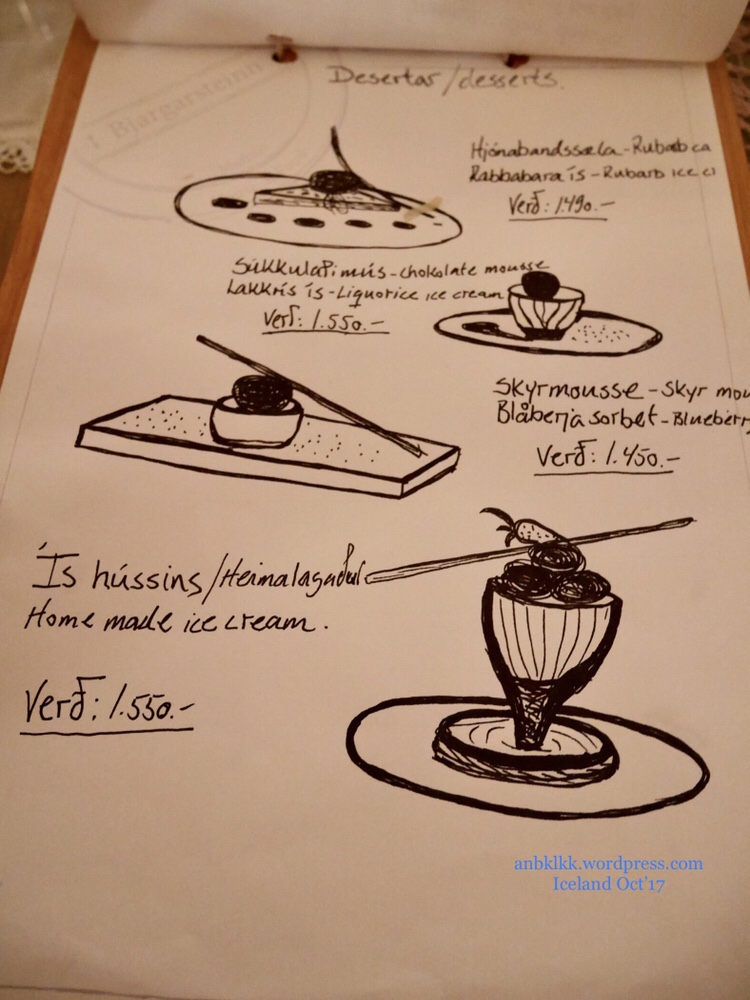 Í Bjargarsteinn
Desertar/desserts.
Hjónabandssæla - Rubarb ca
Rabbabara ís - Rubarb ice c
Verð: 1.490.-
Súkkulaðimús - chokolate mousse
Lakkrís ís - Liquorice ice cream
Verð: 1.550.-
Skyrmousse - Skyr mou
Bláberja sorbet - Blueberry
Verð: 1.450.-
Ís hússins/Heimalagaður
Home made ice cream.
Verð: 1.550.-
anbklkk.wordpress.com
Iceland Oct'17